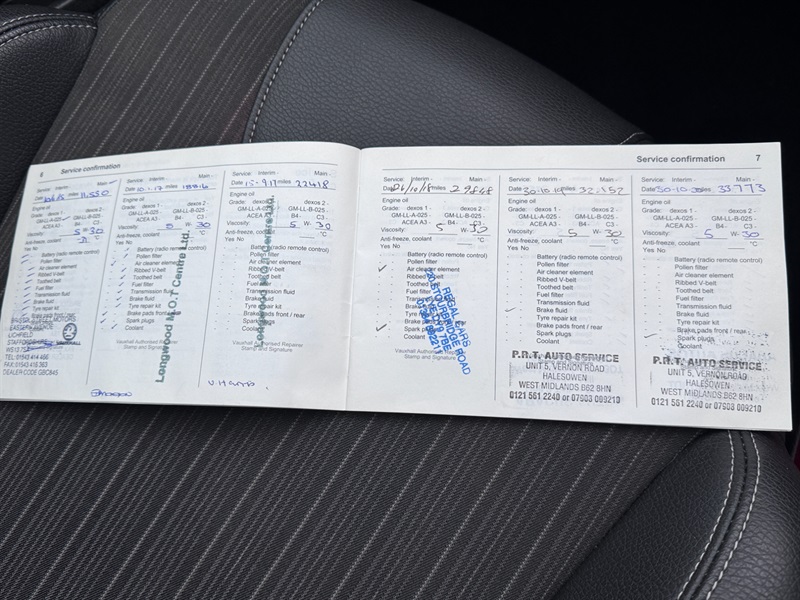 6 Service confirmation
Service: Interim - Main -
miles 11,550
Engine oil
Grade: dexos 1 - dexos 2 -
GM-LL-A-025 - GM-LL-B-025 -
ACEA A3 - B4 - C3 -
Viscosity: 5 W- 30
Anti-freeze, coolant °C
Yes No
Battery (radio remote control)
Pollen filter
Air cleaner element
Ribbed V-belt
Toothed belt
Fuel filter
Transmission fluid
Brake fluid
Tyre repair kit
Brake pads front / rear
Spark plugs
Coolant
LICHFIELD
TEL: 01543 414 466
FAX: 01543 416 363
DEALER CODE GBC845
Service: Interim - Main -
Date miles
Engine oil
Grade: dexos 1 - dexos 2 -
GM-LL-A-025 - GM-LL-B-025 -
ACEA A3 - B4 - C3 -
Viscosity: 5 W- 30
Anti-freeze, coolant °C
Yes No
Battery (radio remote control)
Pollen filter
Air cleaner element
Ribbed V-belt
Toothed belt
Fuel filter
Transmission fluid
Brake fluid
Tyre repair kit
Brake pads front / rear
Spark plugs
Coolant
Vauxhall Authorised Repairer
Stamp and Signature
Longwood M.O.T Centre Ltd.
Service: Interim - Main -
Date 15-9-17 miles 22418
Engine oil
Grade: dexos 1 - dexos 2 -
GM-LL-A-025 - GM-LL-B-025 -
ACEA A3 - B4 - C3 -
Viscosity: 5 W- 30
Anti-freeze, coolant °C
Yes No
Battery (radio remote control)
Pollen filter
Air cleaner element
Ribbed V-belt
Toothed belt
Fuel filter
Transmission fluid
Brake fluid
Tyre repair kit
Brake pads front / rear
Spark plugs
Coolant
Vauxhall Authorised Repairer
Stamp and Signature
Longwood M.O.T Centre Ltd.
Service confirmation 7
Service: Interim - Main -
Date 26/10/18 miles 29848
Engine oil
Grade: dexos 1 - dexos 2 -
GM-LL-A-025 - GM-LL-B-025 -
ACEA A3 - B4 - C3 -
Viscosity: 5 W- 30
Anti-freeze, coolant °C
Yes No
Battery (radio remote control)
Pollen filter
Air cleaner element
Ribbed V-belt
Toothed belt
Fuel filter
Transmission fluid
Brake fluid
Tyre repair kit
Brake pads front / rear
Spark plugs
Coolant
Vauxhall Authorised Repairer
Stamp and Signature
REGAL CARS
STOURBRIDGE ROAD
Service: Interim - Main -
Date 30-10-19 miles 32,152
Engine oil
Grade: dexos 1 - dexos 2 -
GM-LL-A-025 - GM-LL-B-025 -
ACEA A3 - B4 - C3 -
Viscosity: 5 W- 30
Anti-freeze, coolant °C
Yes No
Battery (radio remote control)
Pollen filter
Air cleaner element
Ribbed V-belt
Toothed belt
Fuel filter
Transmission fluid
Brake fluid
Tyre repair kit
Brake pads front / rear
Spark plugs
Coolant
P.R.T. AUTO SERVICE
UNIT 5, VERNON ROAD
HALESOWEN
WEST MIDLANDS B62 8HN
0121 561 2240 or 07903 009210
Service: Interim - Main -
Date 30-10-20 miles 33773
Engine oil
Grade: dexos 1 - dexos 2 -
GM-LL-A-025 - GM-LL-B-025 -
ACEA A3 - B4 - C3 -
Viscosity: 5 W- 30
Anti-freeze, coolant °C
Yes No
Battery (radio remote control)
Pollen filter
Air cleaner element
Ribbed V-belt
Toothed belt
Fuel filter
Transmission fluid
Brake fluid
Tyre repair kit
Brake pads front / rear
Spark plugs
Coolant
P.R.T. AUTO SERVICE
UNIT 5, VERNON ROAD
HALESOWEN
WEST MIDLANDS B62 8HN
0121 561 2240 or 07903 009210